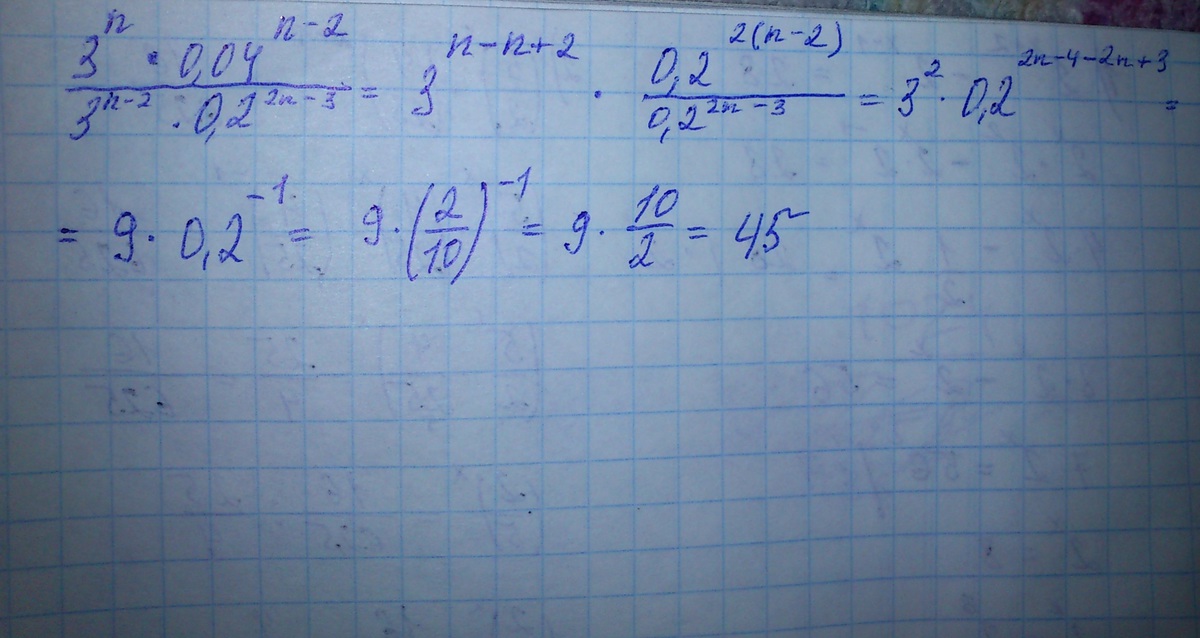 (3^n · 0,04^(n-2)) / (3^(n-2) · 0,2^(2n-3)) = 3^(n-n+2) · 0,2^(2(n-2)) / 0,2^(2n-3) = 3^2 · 0,2^(2n-4-2n+3) =
= 9 · 0,2^(-1) = 9 · (2/10)^(-1) = 9 · 10/2 = 45